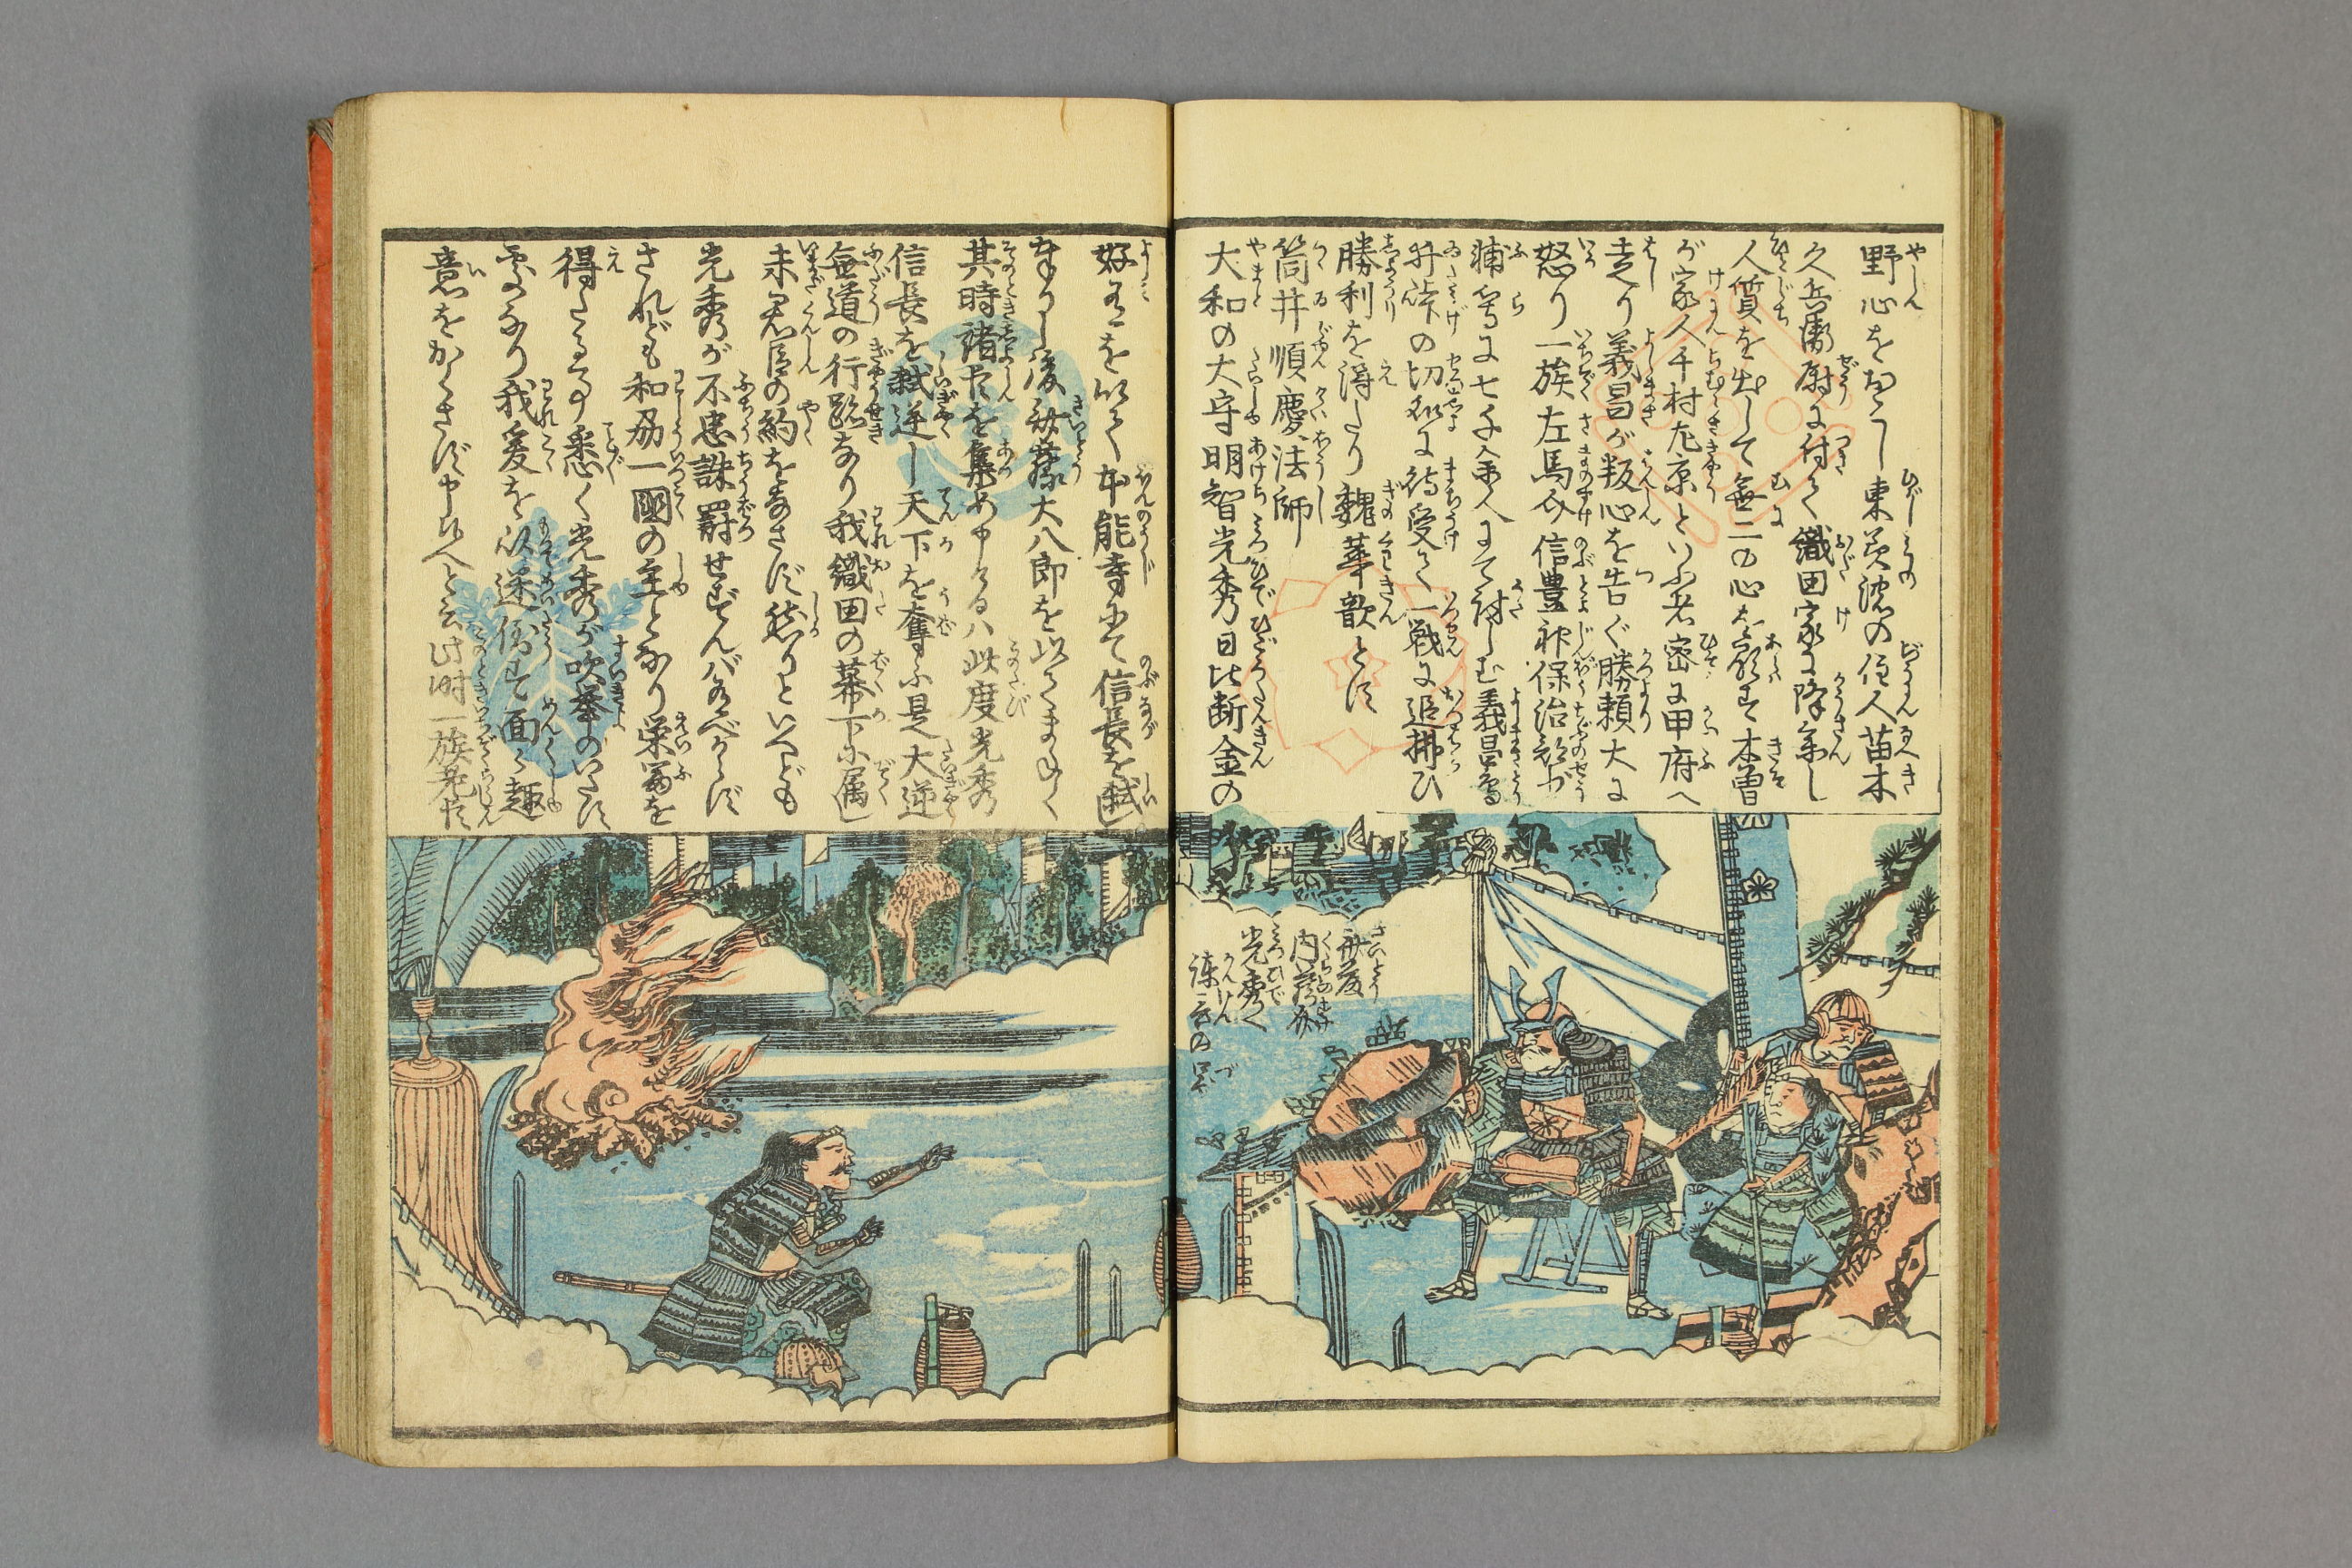 野心をおこし東美濃の住人苗木
久兵衛尉に付て織田家に降参し
人質を出して無二の心を顕す木曽
が家人千村左京といふ者密に甲府へ
走り義昌が叛心を告ぐ勝頼大に
怒り一族左馬介信豊神保治部が
輔等に七千余人にて討しむ義昌鳥
井峠の切所に待受て一戦に追払ひ
勝利を得たり魏華歆とす
筒井順慶法師
大和の大守明智光秀日比断金の
好みを以て本能寺にて信長を弑し
奉りし後斎藤大八郎を以てまねく
其時諸臣を集め申けるハ此度光秀
信長を弑逆し天下を奪ふ是大逆
無道の行跡なり我織田の幕下に属し
未君臣の約をなさず然りといへども
光秀が不忠誅罰せずんバ有べからず
されども和刕一國の主となり栄富を
得たる事悉く光秀が吹挙のいたす
処なり我爰を以迷倒す面々趣
意をかくさず申候へと云此時一族老臣
斎藤
内蔵介
光秀へ
諫言の図